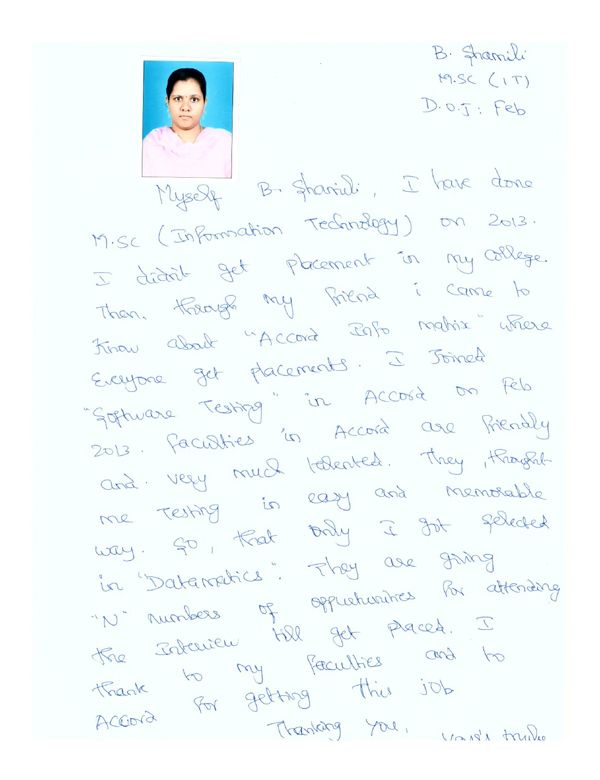 B. Shamili
M.SC (IT)
D.O.J: Feb
Myself B. Shamili, I have done
M.SC (Information Technology) on 2013.
I didn't get placement in my college.
Then, through my friend i came to
know about "Accord Info matrix" where
Everyone get placements. I Joined
"Software Testing" in Accord on Feb
2013. faculties in Accord are friendly
and very much talented. They, thought
me Testing in easy and memorable
way. So, that only I got selected
in "Datamatics". They are giving
"N" numbers of oppurtunities for attending
the Interview till get placed. I
thank to my faculties and to
Accord for getting this job
Thanking you,
your's truly